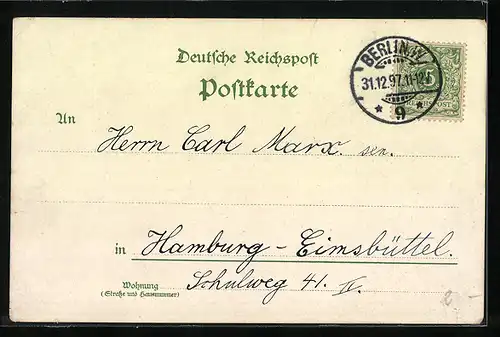 Deutsche Reichspost
Postkarte
BERLIN.W.
31.12.97.11-12
* 9 *
An
Herrn Carl Marx. sen.
in
Hamburg-Eimsbüttel.
Wohnung
(Straße und Hausnummer)
Schulweg 41. II.